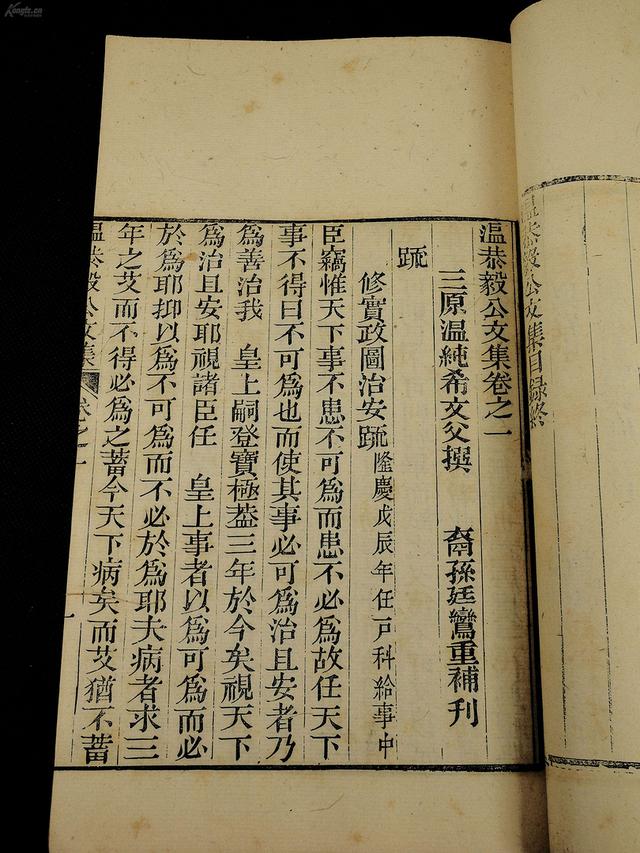 溫恭毅公文集目錄終
溫恭毅公文集卷之一
三原溫純希文父撰 裔孫廷鸞重補刊
䟽
修實政圖治安䟽隆慶戊辰年任戶科給事中
臣竊惟天下事不患不可為而患不必為故任天下
事不得曰不可為也而使其事必可為治且安者乃
為善治我 皇上嗣登寶極葢三年於今矣視天下
為治且安耶視諸臣任 皇上事者以為可為而必
於為耶抑以為不可為而不必於為耶夫病者求三
年之艾而不得必為之蓄今天下病矣而艾猶不蓄
溫恭毅公文集 卷之一 一
Kongfz.cn